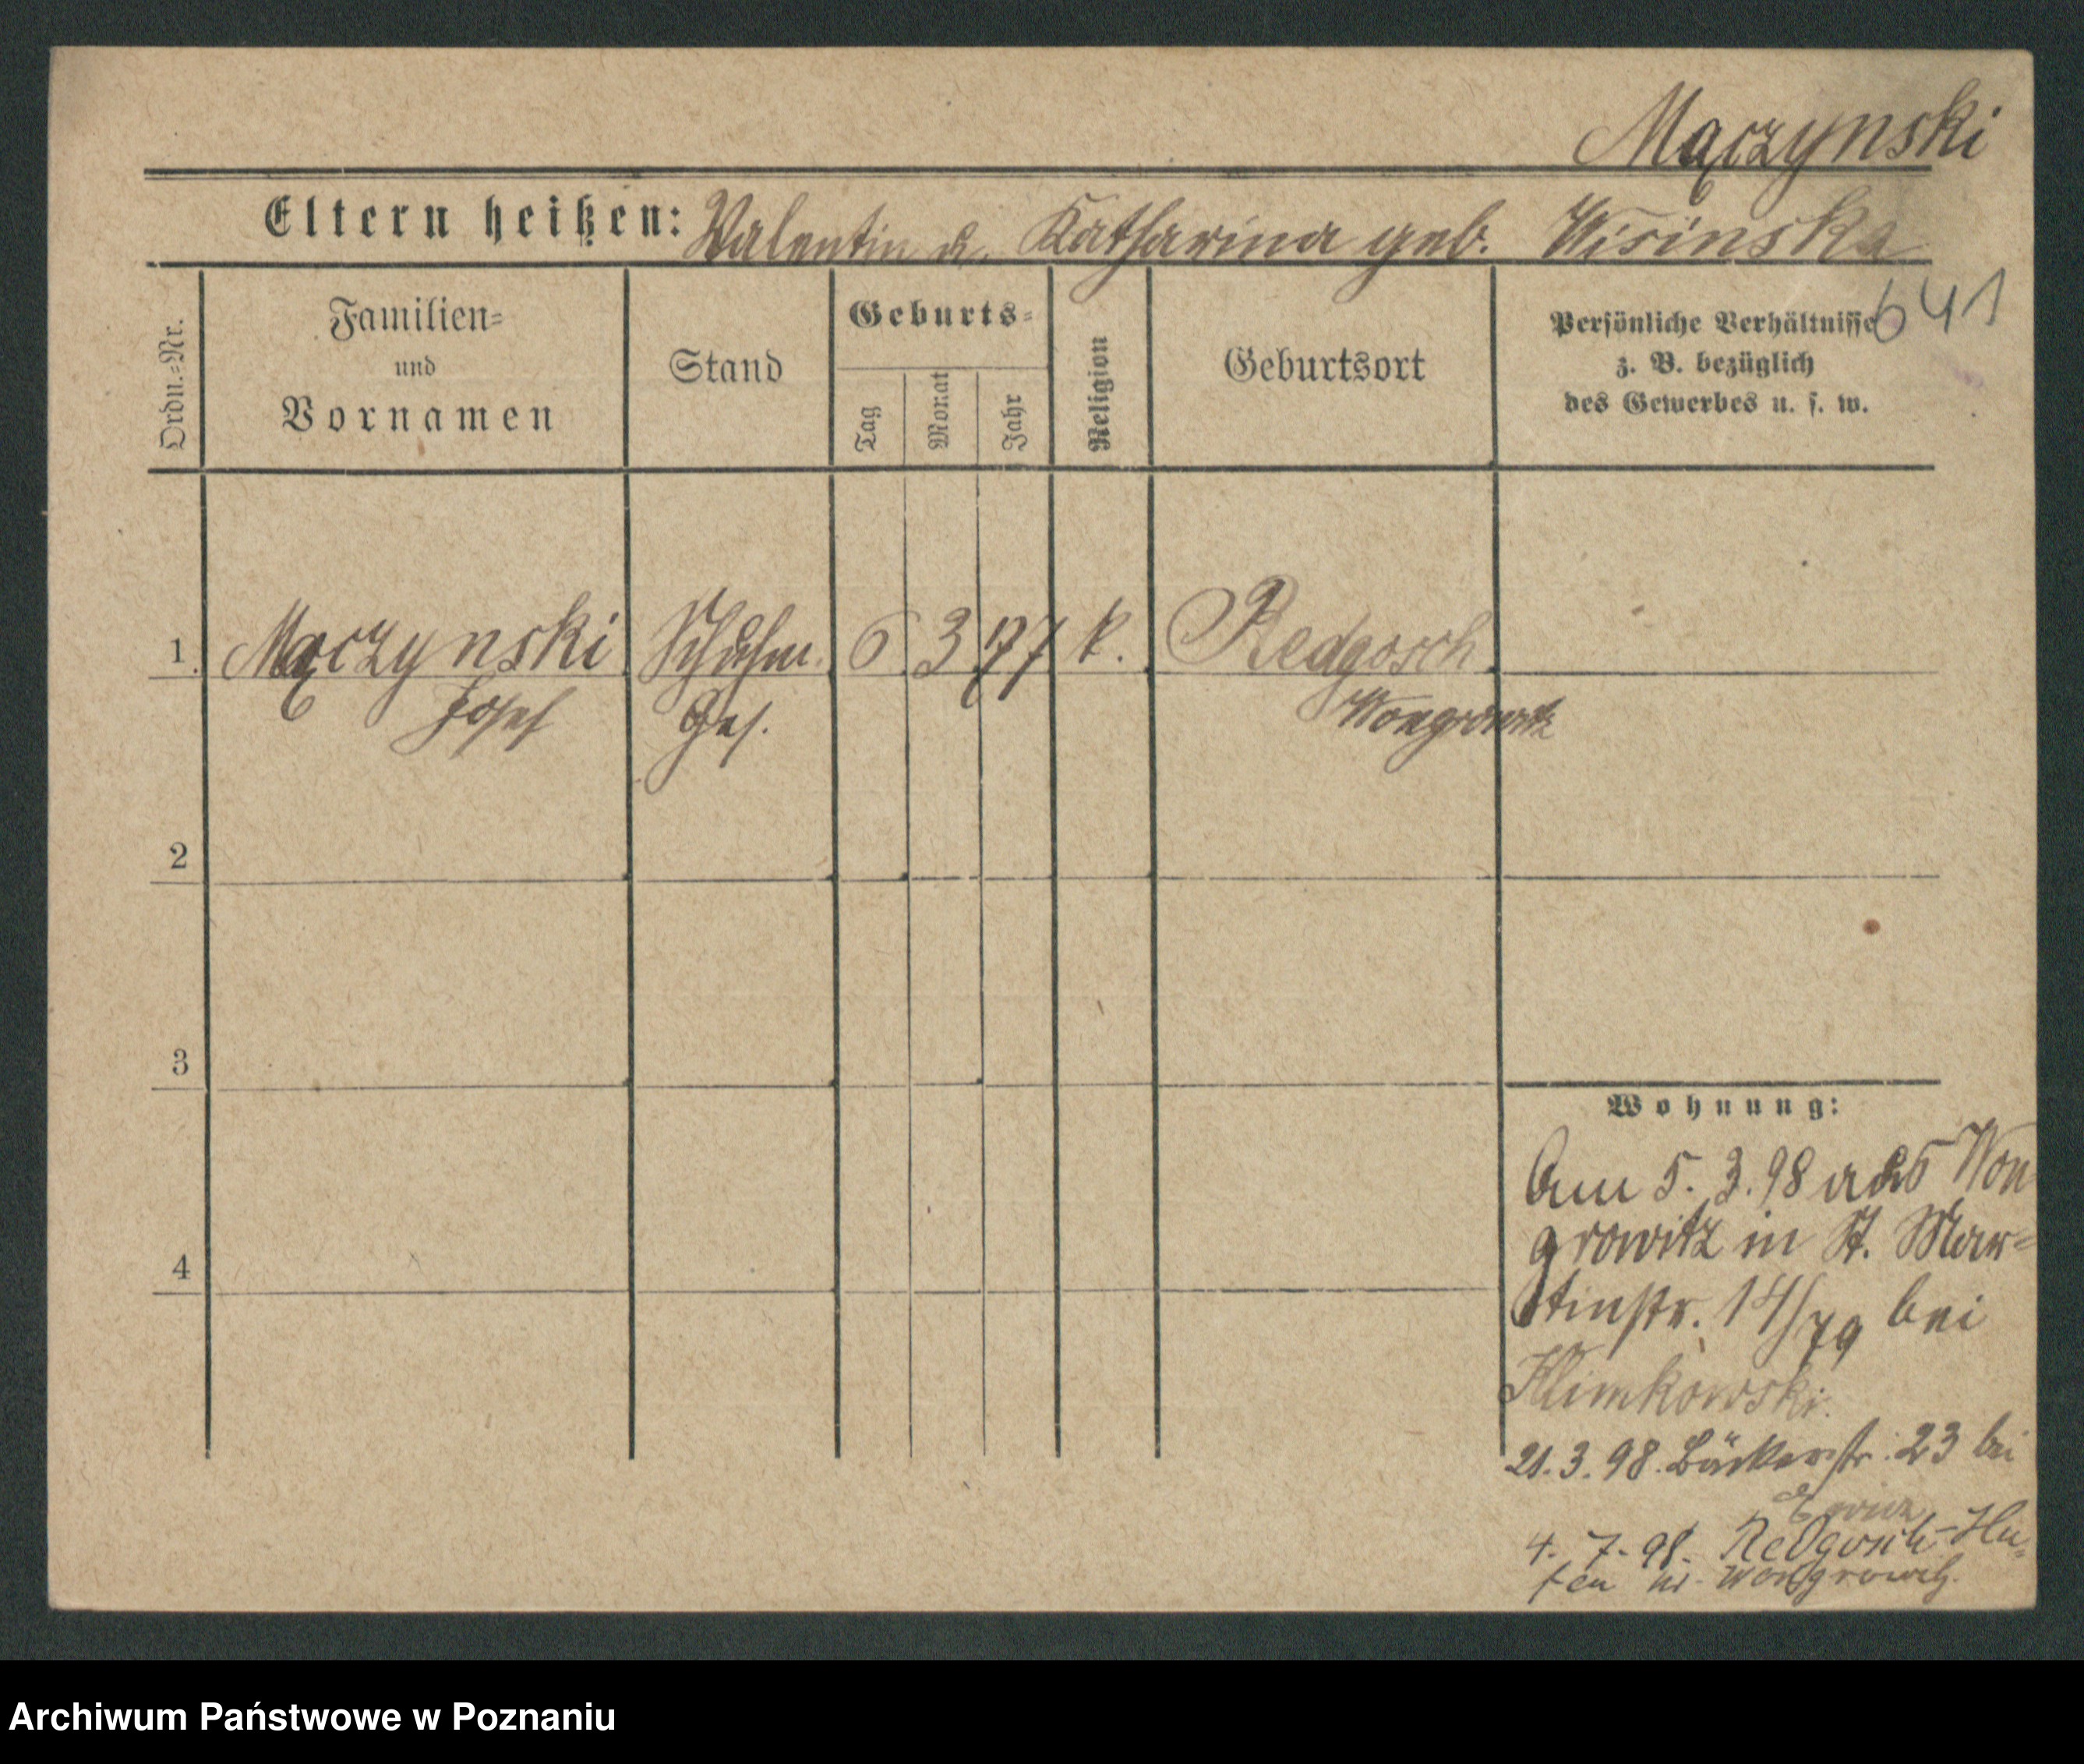 Mączynski
Eltern heißen: Valentin u. Katharina geb. Wisinska
641
Ordn.-Nr.
Familien-
und
Vornamen
Stand
Geburts-
Tag
Monat
Jahr
Religion
Geburtsort
Persönliche Verhältnisse
z. B. bezüglich
des Gewerbes u. s. w.
1. Mączynski Schuhm. 6. 3. 77 k. Redgosch
Josef Ges. Wongrowitz
2
3
4
Wohnung:
Am 5.3.98 aus Won
growitz in St. Mar-
tinstr. 14/79 bei
Klimkowski.
21.3.98. Bäckerstr. 23 bei
4. 7. 98. Redgosch-Hu-
fen Wongrowitz.
Archiwum Państwowe w Poznaniu